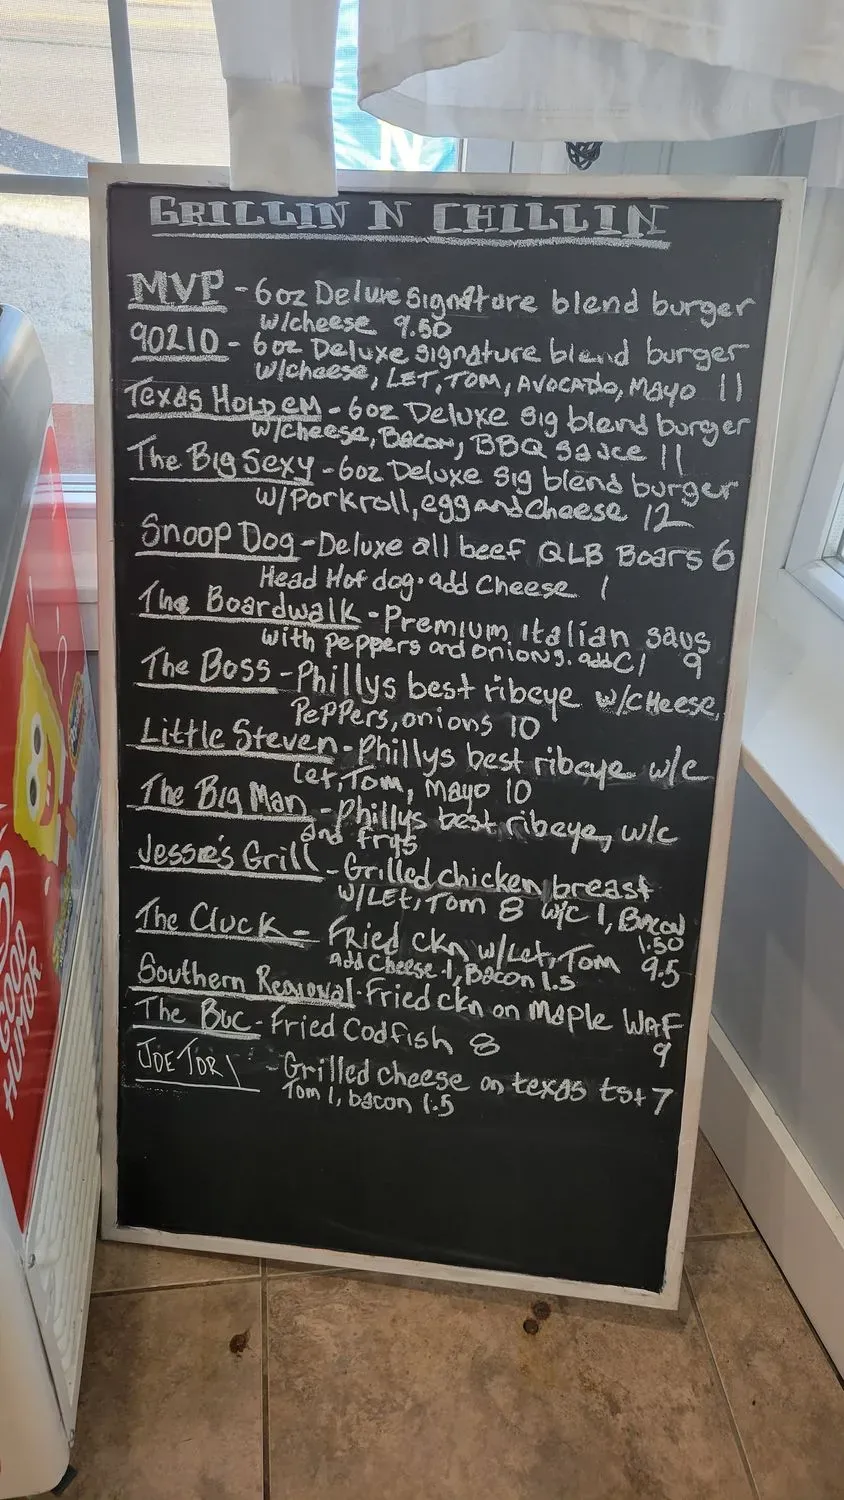 GRILLIN N CHILLIN
MVP - 6oz Deluxe Signature blend burger
w/cheese 9.50
90210 - 6oz Deluxe signature blend burger
w/cheese, LET, TOM, AVOCADO, MAYO 11
Texas HOLD EM - 6oz Deluxe sig blend burger
w/cheese, Bacon, BBQ Sauce 11
The Big Sexy - 6oz Deluxe sig blend burger
w/Porkroll, egg and cheese 12
Snoop Dog - Deluxe all beef QLB Boars 6
Head Hot dog. add Cheese 1
The Boardwalk - Premium Italian saus
with peppers and onions. add C1 9
The Boss - Phillys best ribeye w/cHeese,
PePPers, onions 10
Little Steven - Phillys best ribeye w/c
Let, Tom, Mayo 10
The Big Man - Phillys best ribeye, w/c
and frys
Jessie's Grill - Grilled chicken breast
w/LET, Tom 8 w/c 1, Bacon
1.50
The Cluck - Fried ckn w/Let, Tom 9.5
add Cheese 1, Bacon 1.5
Southern Fried ckn on Maple WAF
9
The Buc - Fried Codfish 8
JOE TORI - Grilled cheese on texas tst 7
Tom 1, bacon 1.5
GOOD
HUMOR